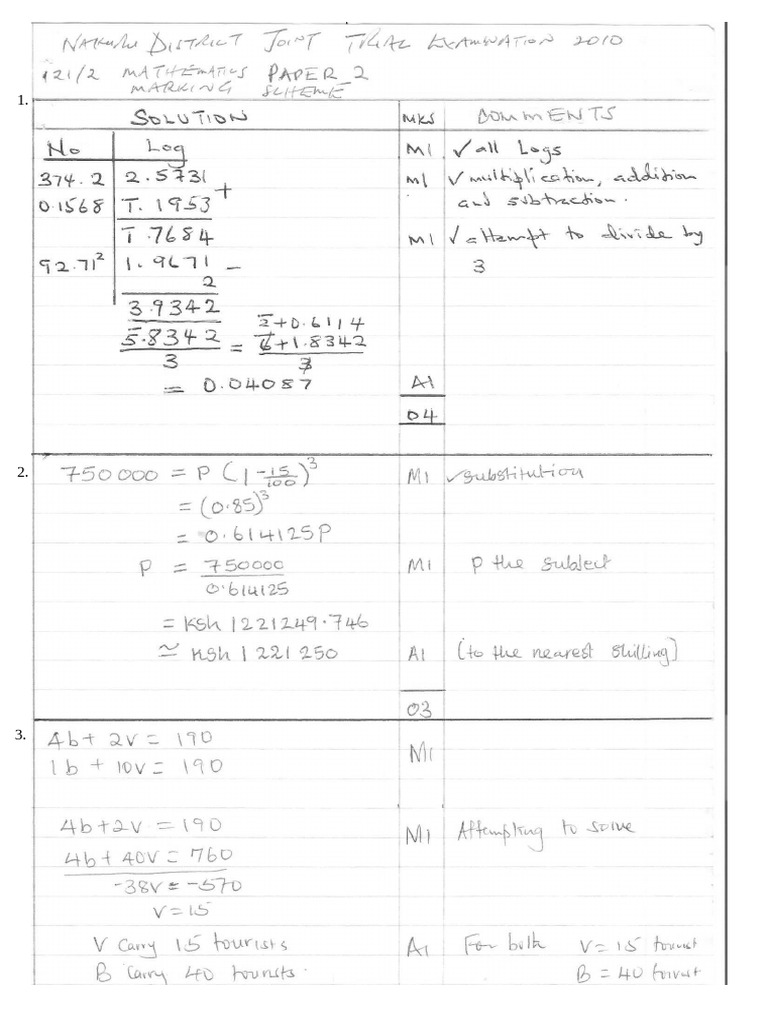 NAKURU DISTRICT JOINT TRIAL EXAMINATION 2010
121/2 MATHEMATICS PAPER 2
MARKING SCHEME
1.
SOLUTION MKS COMMENTS
No Log M1 ✓ all Logs
374.2 2.5731 + M1 ✓ multiplication, addition
0.1568 T. 1953 and subtraction.
T.7684 M1 ✓ attempt to divide by
92.71² 1.9671 – 3
2
3.9342 2̄+0.6114
5̄.8342 = 6̄+1.8342
3 3
= 0.04087 A1
04
2. 750000 = P(1-15/100)³ M1 ✓substitution
= (0.85)³
= 0.614125P
P = 750000 M1 P the subject
0.614125
= Ksh 1221249.746
≃ Ksh 1221250 A1 (to the nearest shilling)
03
3. 4b + 2v = 190 M1
1b + 10v = 190
4b+2v = 190 M1 Attempting to solve
4b + 40v = 760
-38v = -570
v = 15
V carry 15 tourists A1 For both V = 15 tourist
B carry 40 tourists. B = 40 tourist